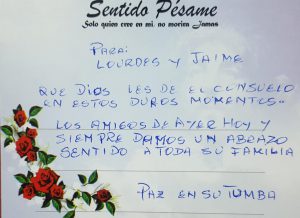 Sentido Pésame
Solo quien cree en mi, no morira Jamas
PARA:
LOURDES Y JAIME
QUE DIOS LES DE EL CONSUELO
EN ESTOS DUROS MOMENTOS..
LOS AMIGOS DE AYER HOY Y
SIEMPRE DAMOS UN ABRAZO
SENTIDO A TODA SU FAMILIA
PAZ EN SU TUMBA